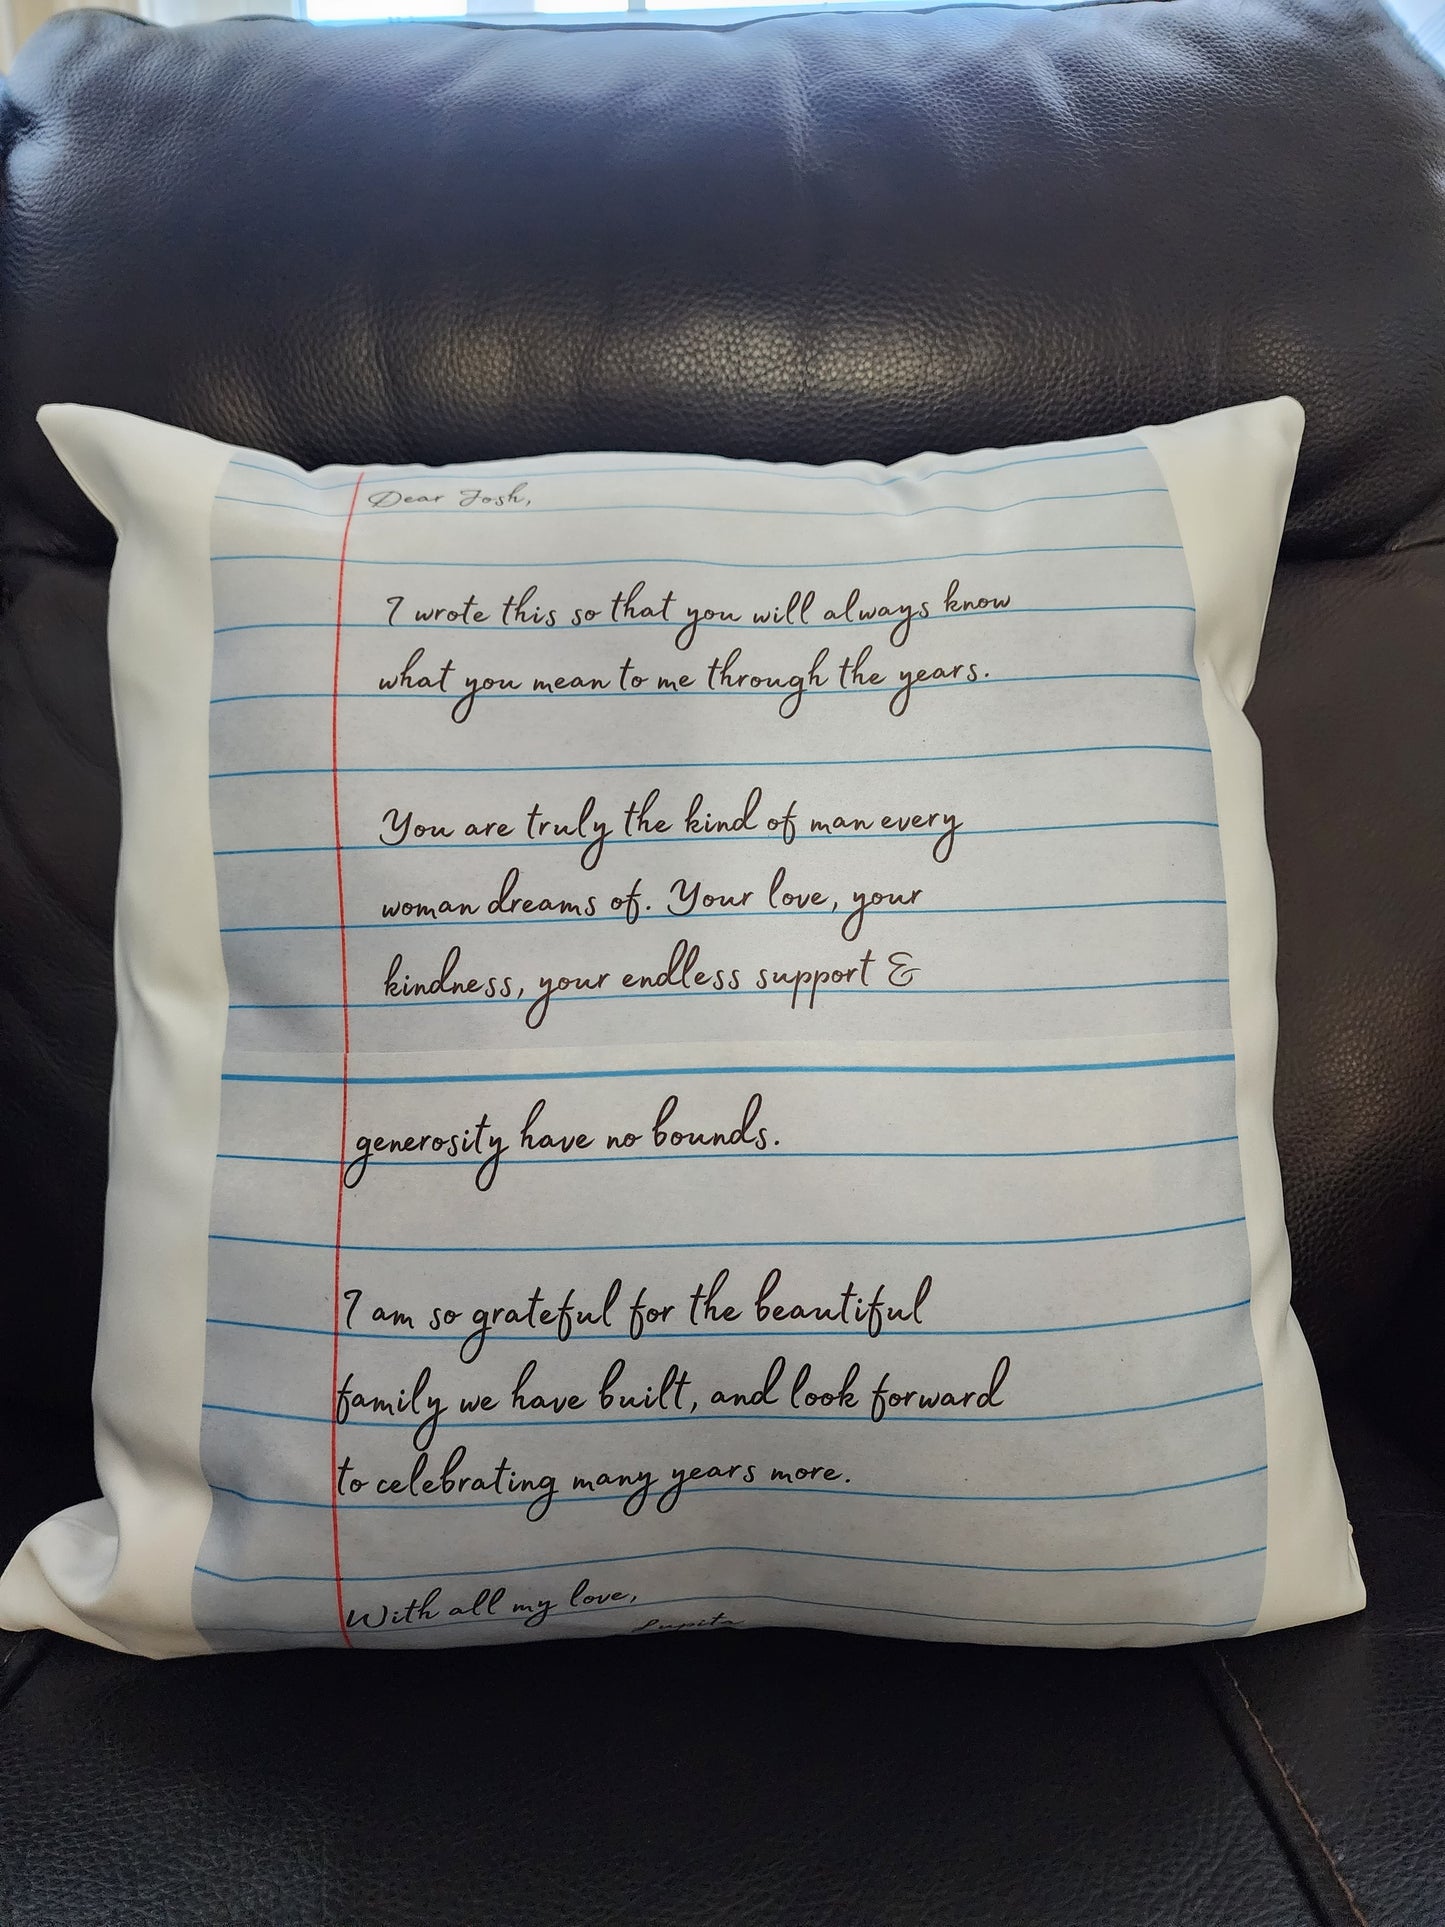 Dear Josh,
I wrote this so that you will always know
what you mean to me through the years.
You are truly the kind of man every
woman dreams of. Your love, your
kindness, your endless support &
generosity have no bounds.
I am so grateful for the beautiful
family we have built, and look forward
to celebrating many years more.
With all my love,
Lupita